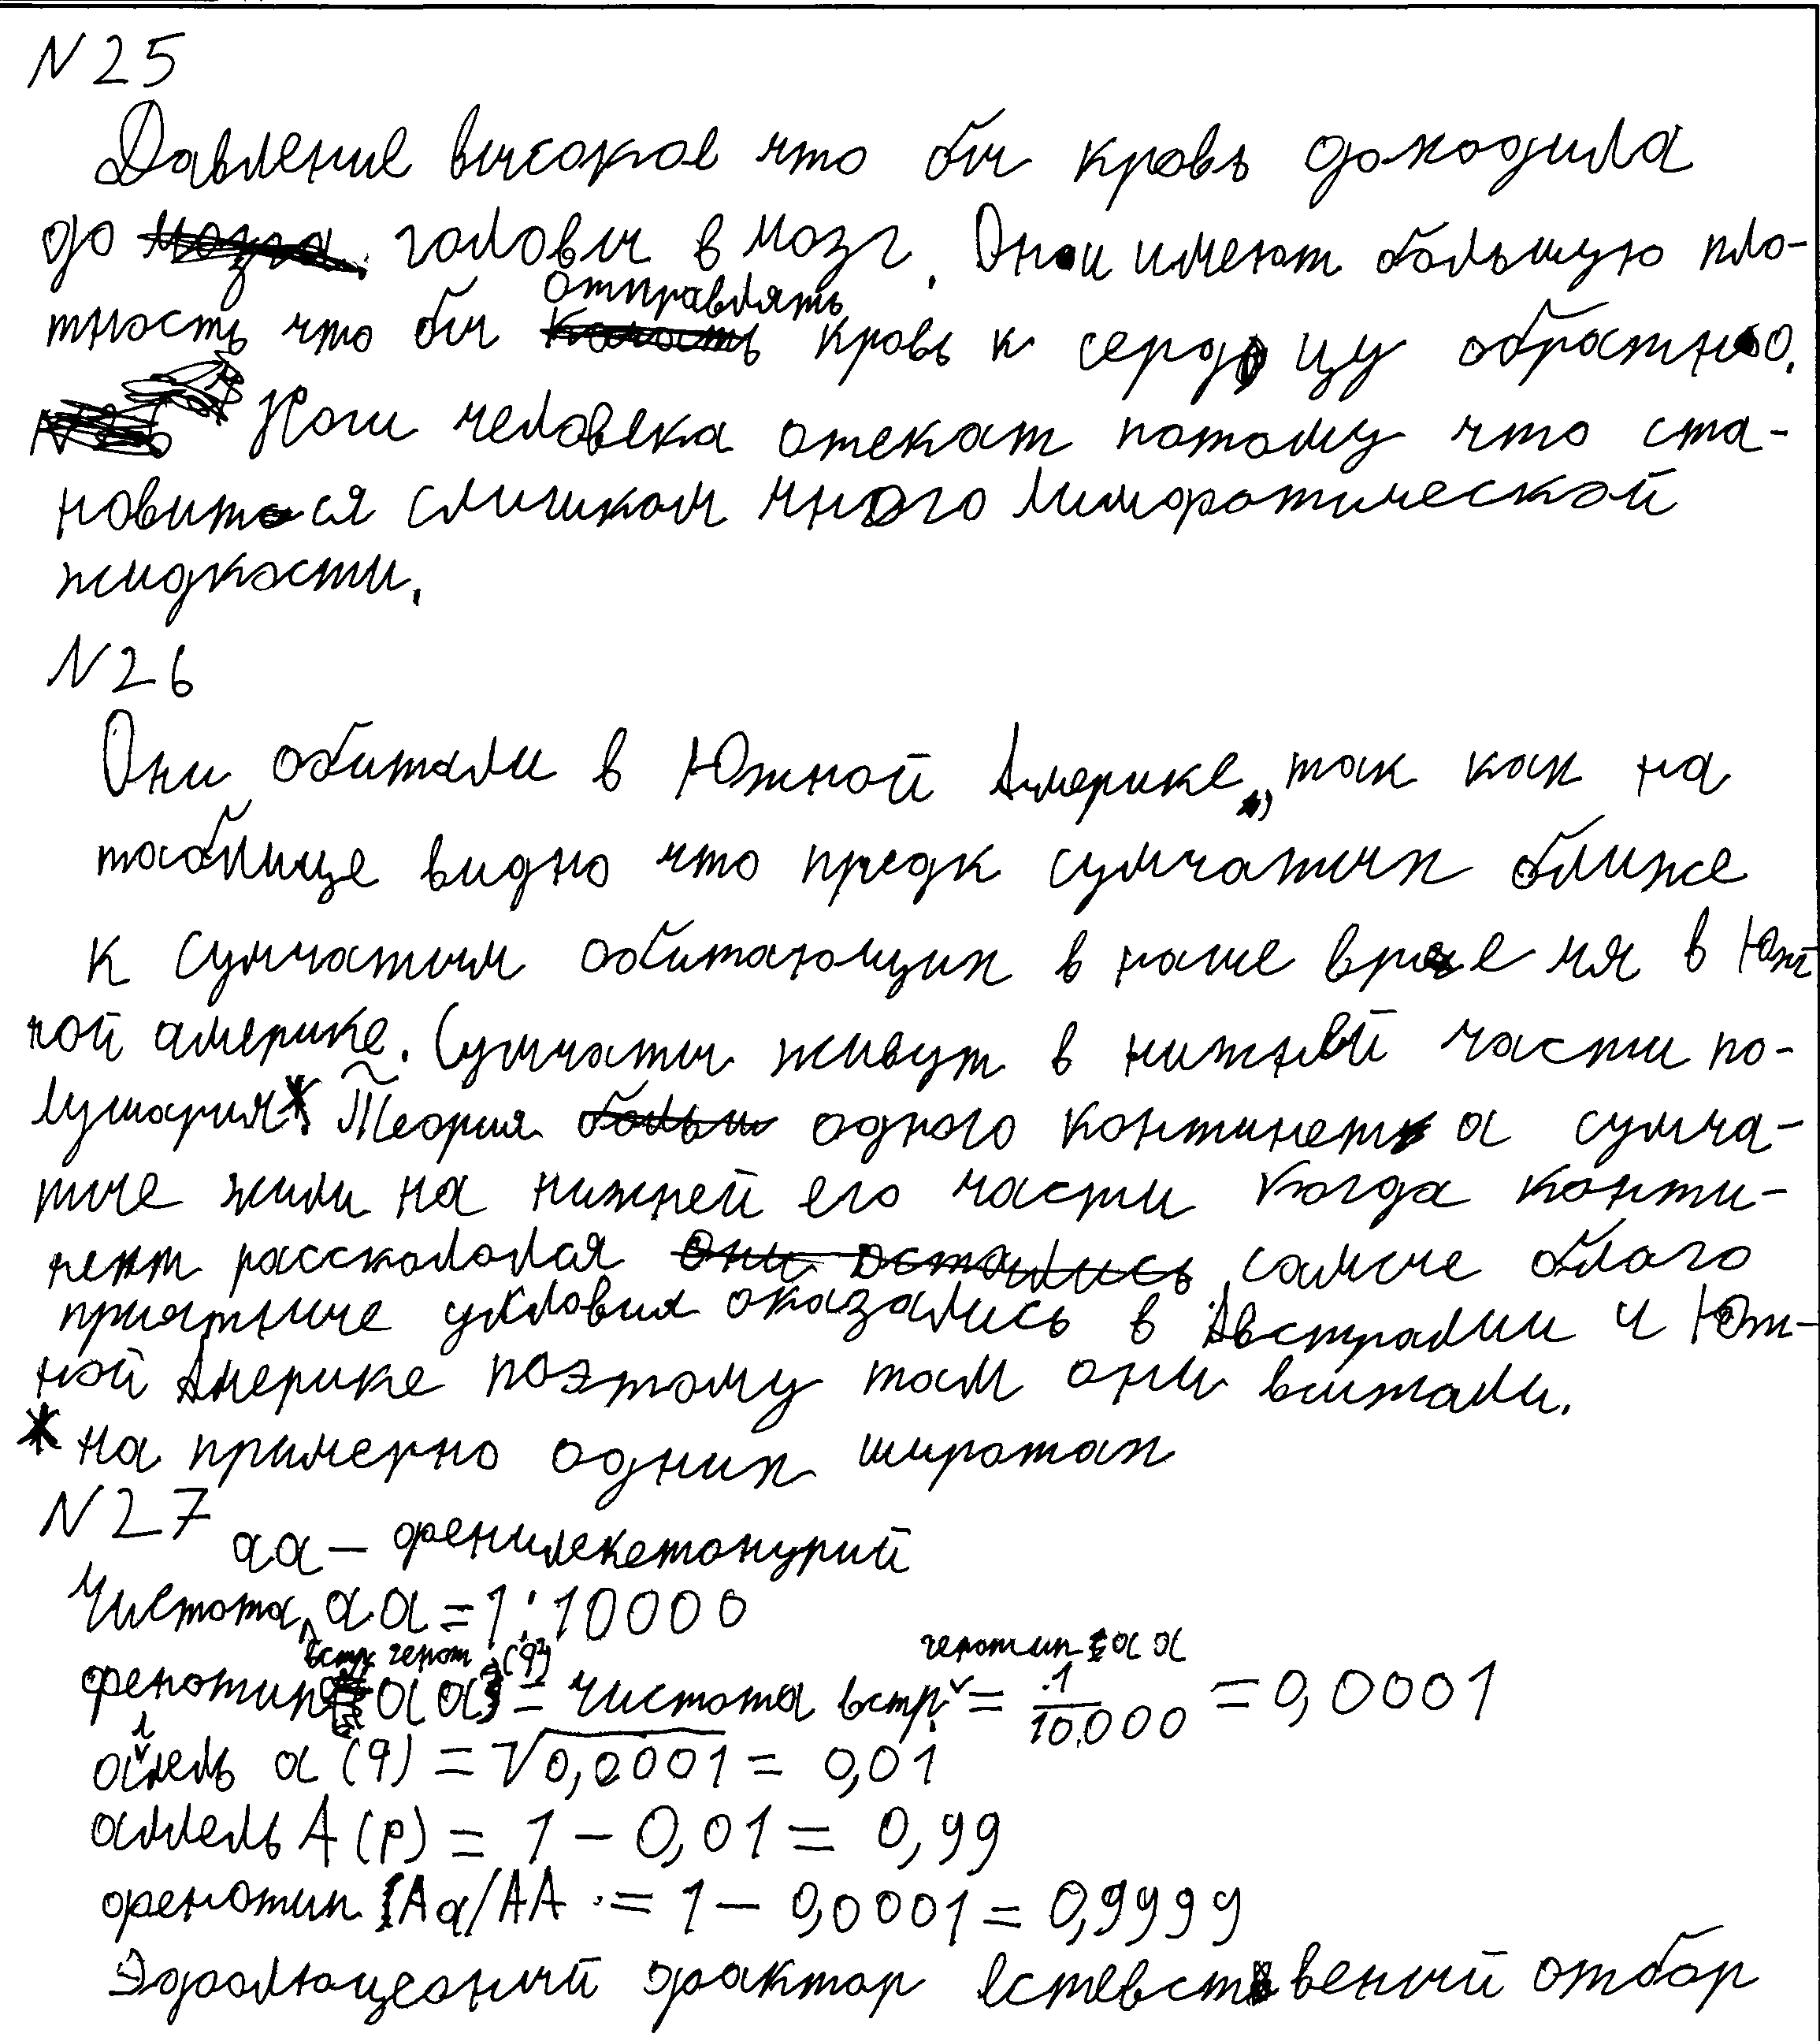 N25
Давление высокое что бы кровь доходила
до головы в мозг. Они имеют большую пло-
тность что бы отправлять кровь к сердцу обратно.
Ноги человека отекат потому что ста-
новится слишком много лимфатической
жидкости.
N26
Они обитали в Южной Америке, так как на
таблице видно что предк сумчатых ближе
к сумчатым обитающих в наше время в Юж-
ной америке. Сумчаты живут в нижней части по-
лушария*. Теория одного континета сумча-
тые жили на нижней его части когда конти-
нент расскололся самые благо
приятные условия оказались в Австралии и Юж-
ной Америке поэтому там они выжали.
* на примерно одних широтах
N27
аа – фенилекетонурий
Чистота встр. генот аа = 1:10000
фенотип аа (q²) = чистота встр. генотип аа = 1/10.000 = 0,0001
аллель а (q) = √0,0001 = 0,01
аллель А (p) = 1 – 0,01 = 0,99
фенотип Аа/АА = 1 – 0,0001 = 0,9999
фактор естевственый отбор